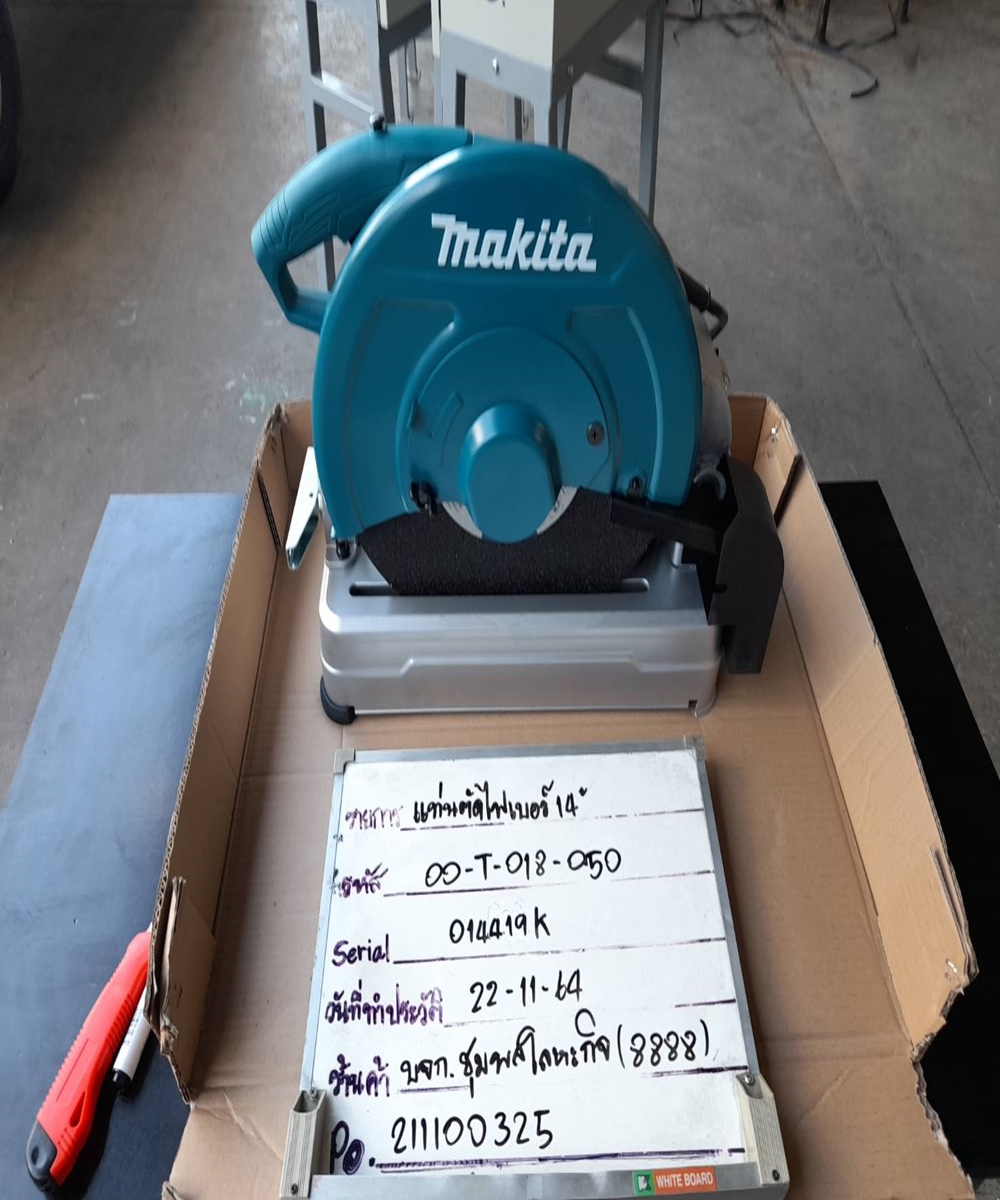 makita
รายการ แท่นตัดไฟเบอร์ 14"
รหัส 00-T-018-050
Serial 014419K
วันที่ทำประวัติ 22-11-64
ร้านค้า บจก. ชุมพลโลหะกิจ (8888)
Po. 211100325
WHITE BOARD